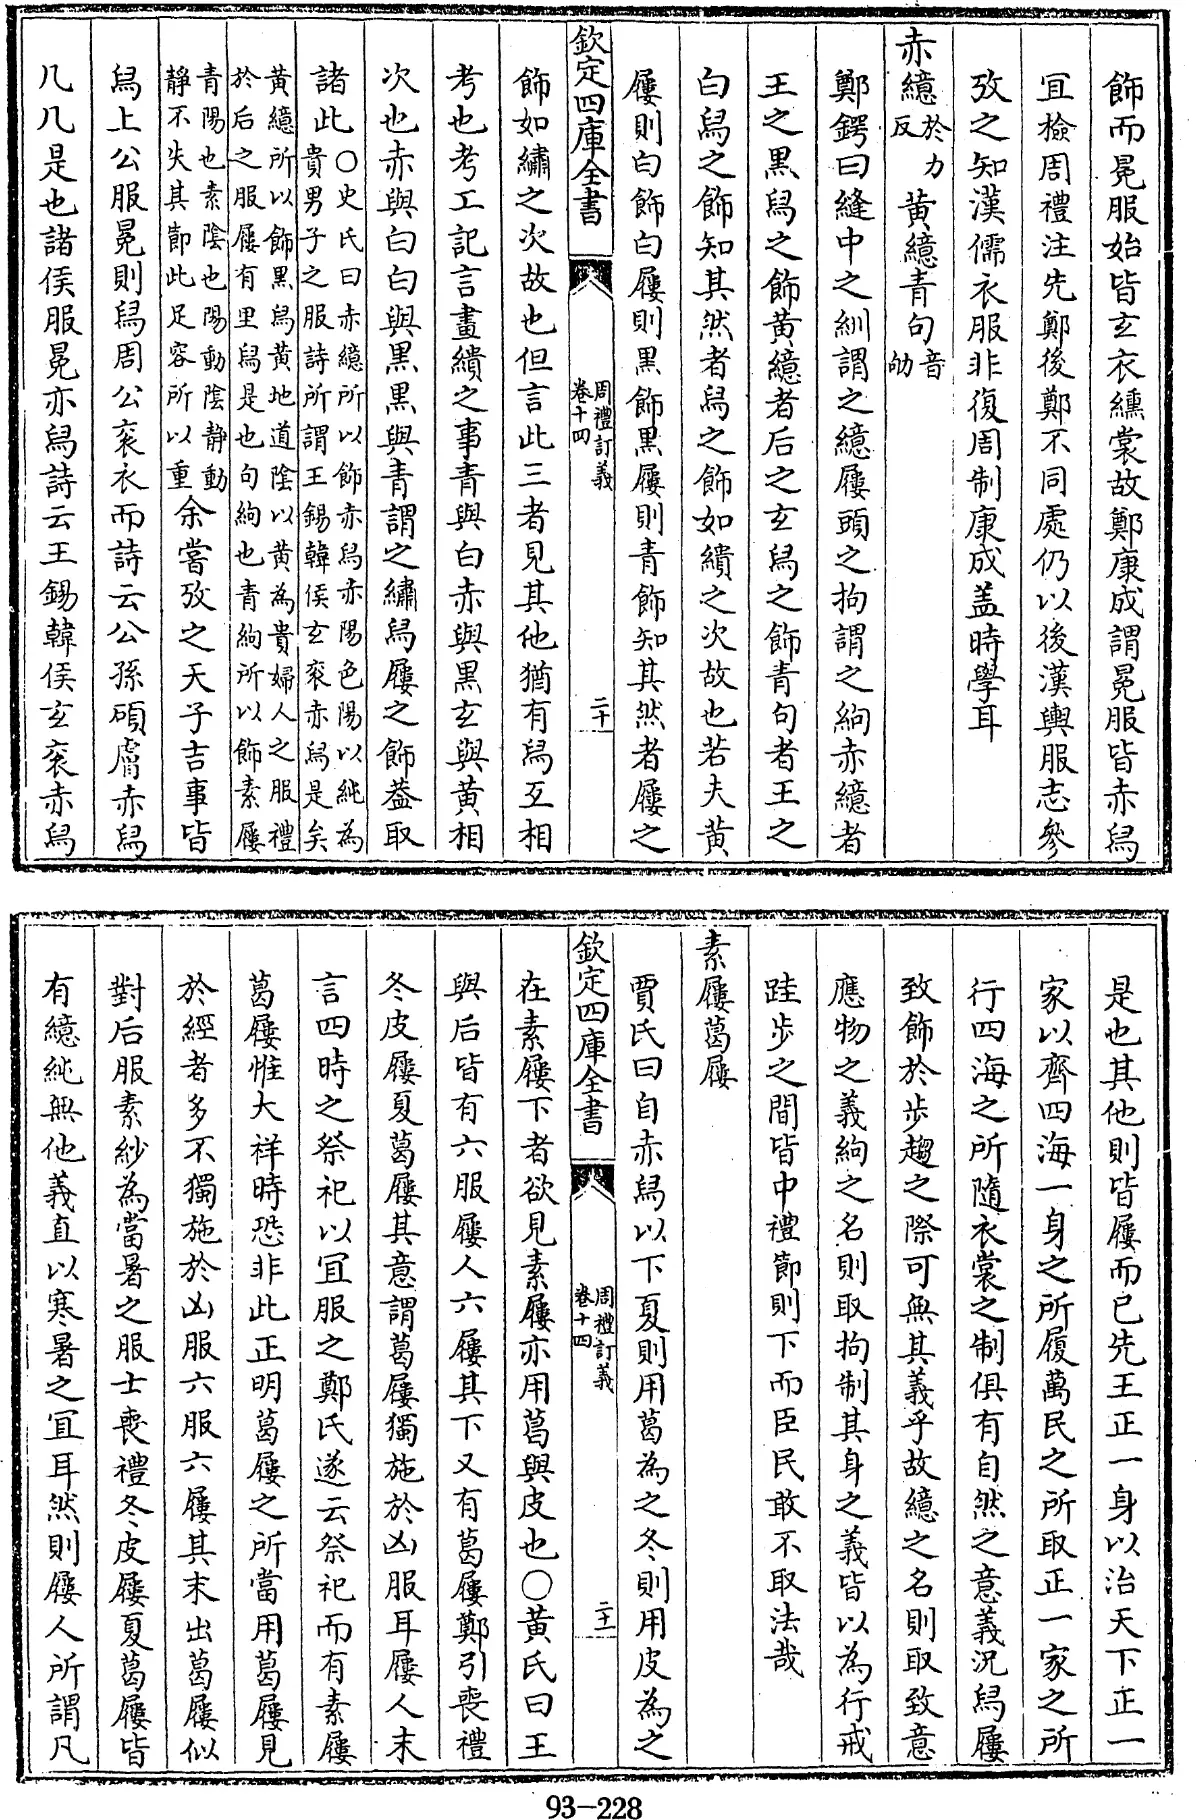 飾而冕服始皆玄衣纁裳故鄭康成謂冕服皆赤舄
宜檢周禮注先鄭後鄭不同處仍以後漢輿服志參
攷之知漢儒衣服非復周制康成蓋時學耳
赤繶於力反黃繶青句音劬
鄭鍔曰縫中之紃謂之繶屨頭之拘謂之絇赤繶者
王之黑舄之飾黃繶者后之玄舄之飾青句者王之
白舄之飾知其然者舄之飾如繢之次故也若夫黃
屨則白飾白屨則黑飾黑屨則青飾知其然者屨之
欽定四庫全書 周禮訂義 卷十四 二十
飾如繡之次故也但言此三者見其他猶有舄互相
考也考工記言畫繢之事青與白赤與黑玄與黃相
次也赤與白白與黑黑與青謂之繡舄屨之飾蓋取
諸此○史氏曰赤繶所以飾赤舄赤陽色陽以純為
貴男子之服詩所謂王錫韓侯玄袞赤舄是矣
黃繶所以飾黑舄黃地道陰以黃為貴婦人之服禮
於后之服屨有里舄是也句絇也青絇所以飾素屨
青陽也素陰也陽動陰靜動
靜不失其節此足容所以重余嘗攷之天子吉事皆
舄上公服冕則舄周公袞衣而詩云公孫碩膚赤舄
几几是也諸侯服冕亦舄詩云王錫韓侯玄袞赤舄
是也其他則皆屨而已先王正一身以治天下正一
家以齊四海一身之所履萬民之所取正一家之所
行四海之所隨衣裳之制俱有自然之意義況舄屨
致飾於步趨之際可無其義乎故繶之名則取致意
應物之義絇之名則取拘制其身之義皆以為行戒
跬步之間皆中禮節則下而臣民敢不取法哉
素屨葛屨
賈氏曰自赤舄以下夏則用葛為之冬則用皮為之
欽定四庫全書 周禮訂義 卷十四 二十一
在素屨下者欲見素屨亦用葛與皮也○黃氏曰王
與后皆有六服屨人六屨其下又有葛屨鄭引喪禮
冬皮屨夏葛屨其意謂葛屨獨施於凶服耳屨人末
言四時之祭祀以宜服之鄭氏遂云祭祀而有素屨
葛屨惟大祥時恐非此正明葛屨之所當用葛屨見
於經者多不獨施於凶服六服六屨其末出葛屨似
對后服素紗為當暑之服士喪禮冬皮屨夏葛屨皆
有繶純無他義直以寒暑之宜耳然則屨人所謂凡
93-228